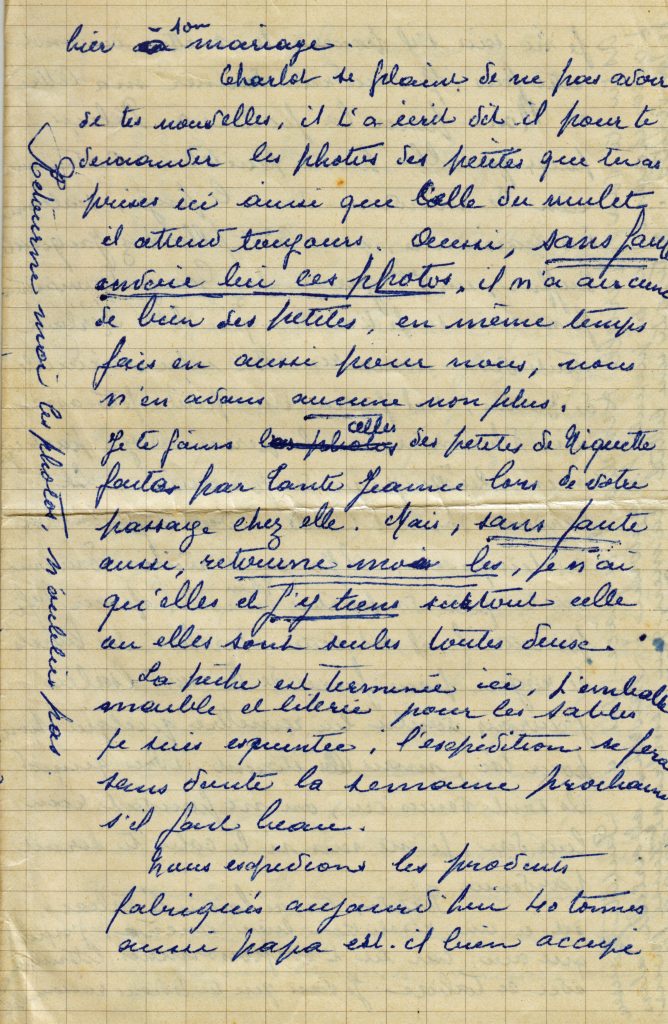 hier à son mariage.
Charlot se plaint de ne pas avoir
de tes nouvelles, il t'a écrit dit il pour te
demander les photos des petites que tu as
prises ici ainsi que celle du mulet
il attend toujours. Aussi, sans faute
envoie lui ces photos, il n'a aucune
de bien des petites, en même temps
fais en aussi pour nous, nous
n'en avons aucune non plus.
Je te joins les photos celles des petites de Niquette
faites par Tante Jeanne lors de votre
passage chez elle. Mais, sans faute
aussi, retourne moi les, je n'ai
qu'elles et j'y tiens surtout celle
ou elles sont seules toutes deux.
La pêche est terminée ici, j'emballe
meuble et literie pour les sables
je suis esquintée ; l'expédition se fera
sans doute la semaine prochaine
s'il fait beau.
Nous expédions les produits
fabriqués aujourd'hui 40 tonnes
aussi papa est-il bien occupé
Retourne moi les photos, n'oublie pas.